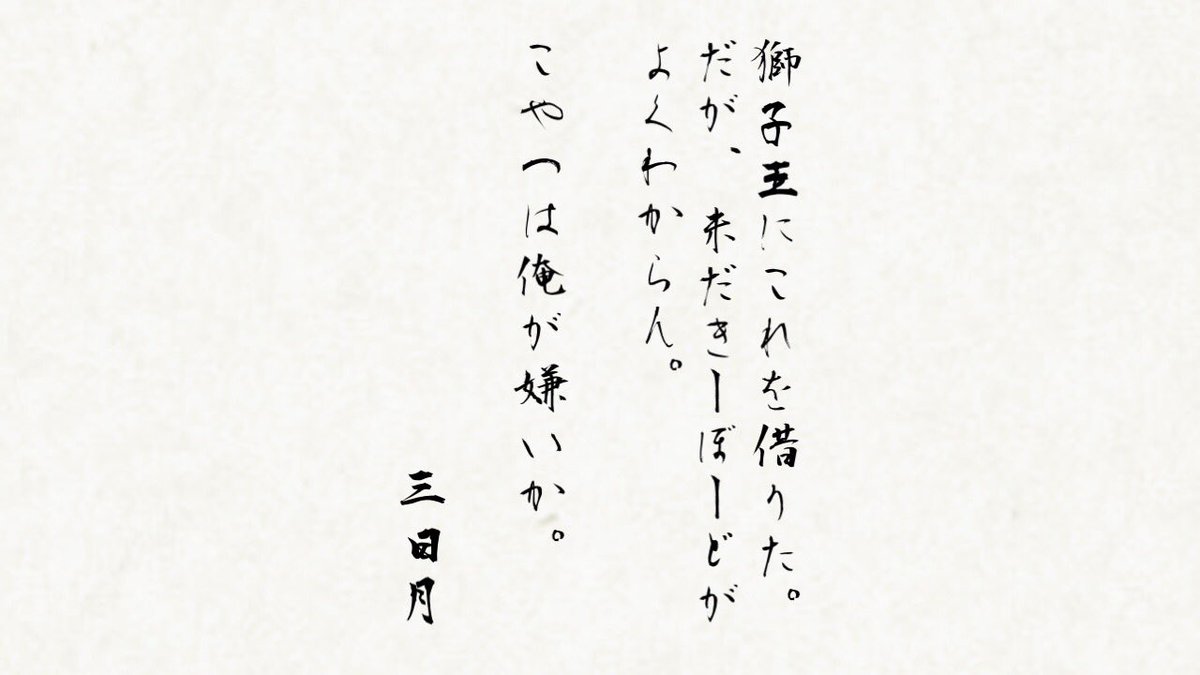 獅子王にこれを借りた。
だが、未だきーぼーどが
よくわからん。
こやつは俺が嫌いか。
三日月